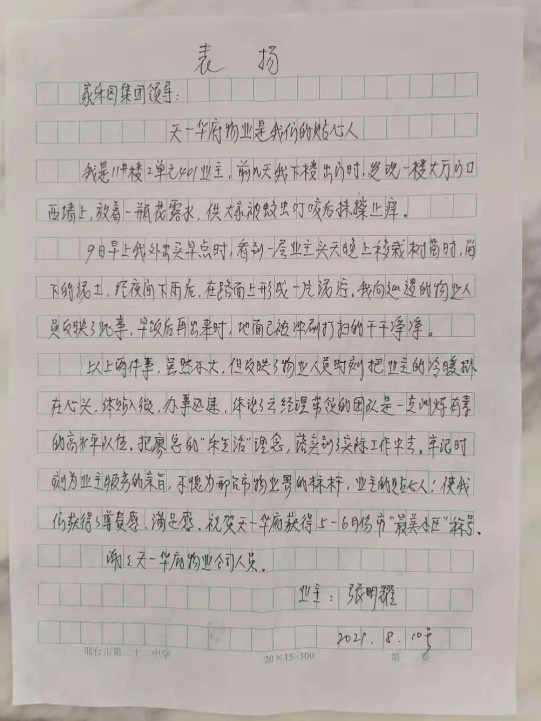 表扬
家乐园集团领导：
天一华府物业是我们的贴心人
我是11#楼2单元401业主，前几天我下楼出门时，发现一楼大厅门口
西墙上，放着一瓶花露水，供大家被蚊虫叮咬后抹擦止痒。
9日早上我外出买早点时，看到一层业主头天晚上移栽树苗时，留
下的泥土，经夜间下雨后，在路面上形成一片泥污。我向巡逻的物业人
员反映了此事，早饭后再出来时，地面已被冲刷打扫的干干净净。
以上两件事，虽然不大，但反映了物业人员时刻把业主的冷暖挂
在心头，体贴入微，办事迅速，体现了云经理带领的团队是一支训练有素
的高水平队伍。把廖总的“乐生活”理念，落实到了实际工作中去。牢记时
刻为业主服务的宗旨，不愧为邢台市物业界的标杆，业主的贴心人！使我
们获得了尊贵感，满足感。祝贺天一华府获得5-6月份市“最美小区”称号。
谢谢天一华府物业公司人员。
业主：张明耀
2021.8.10号
邢台市第二十二中学 20×15=300 第 页